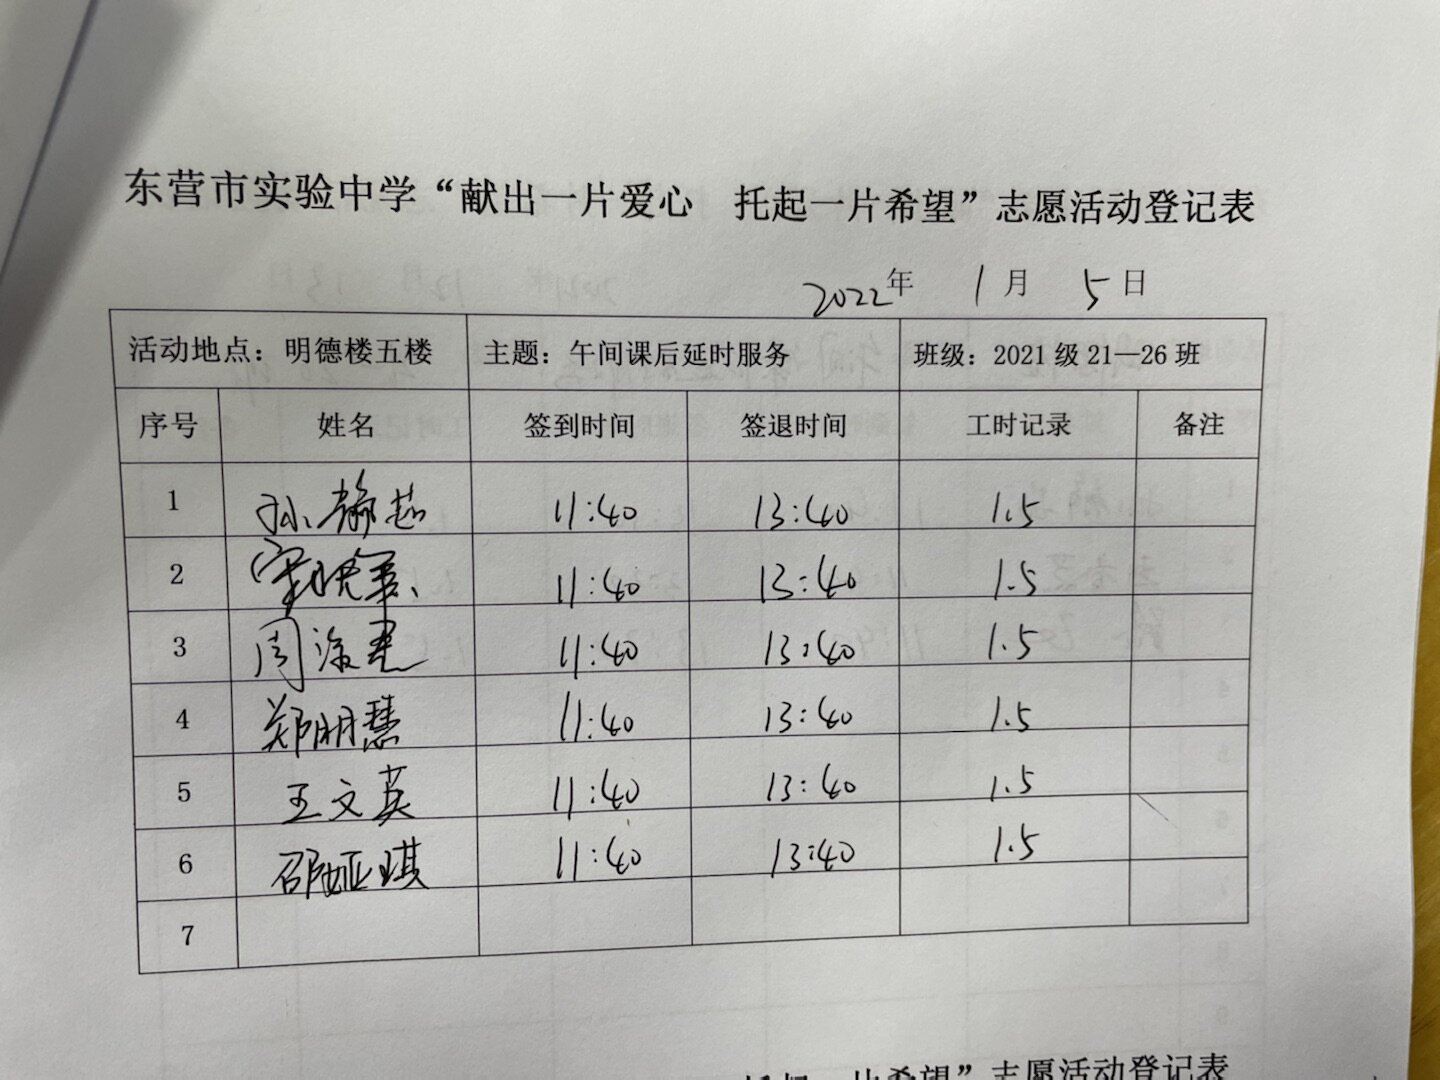 东营市实验中学“献出一片爱心 托起一片希望”志愿活动登记表
2022年 1月 5日
活动地点：明德楼五楼 主题：午间课后延时服务 班级：2021级21—26班
序号 姓名 签到时间 签退时间 工时记录 备注
1 孙静茹 11:40 13:40 1.5
2 11:40 13:40 1.5
3 周 11:40 13:40 1.5
4 郑明慧 11:40 13:40 1.5
5 王文英 11:40 13:40 1.5
6 邵娅琪 11:40 13:40 1.5
7
托起一片希望”志愿活动登记表